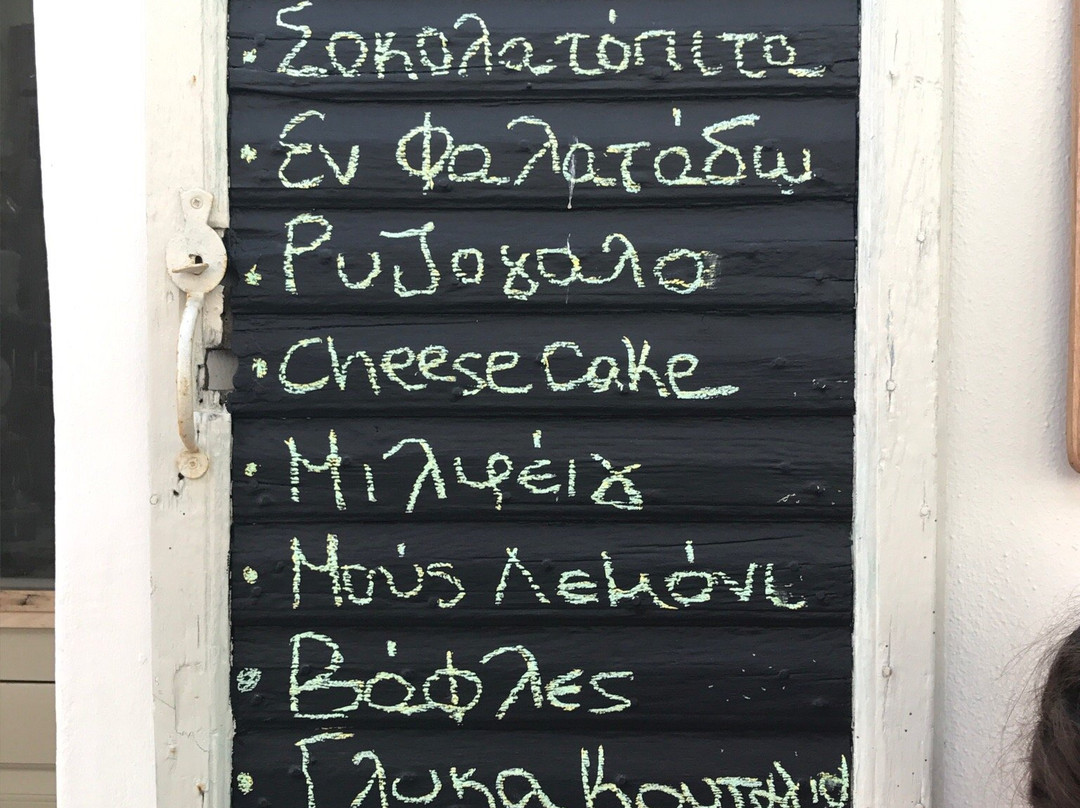 • Σοκολατόπιτα
• Εν Φαλατάδω
• Ρυζογαλο
• Cheese Cake
• Μιλφέιγ
• Μούς Λεμόνι
• Βάφλες
• Γλυκα Κουταλιού